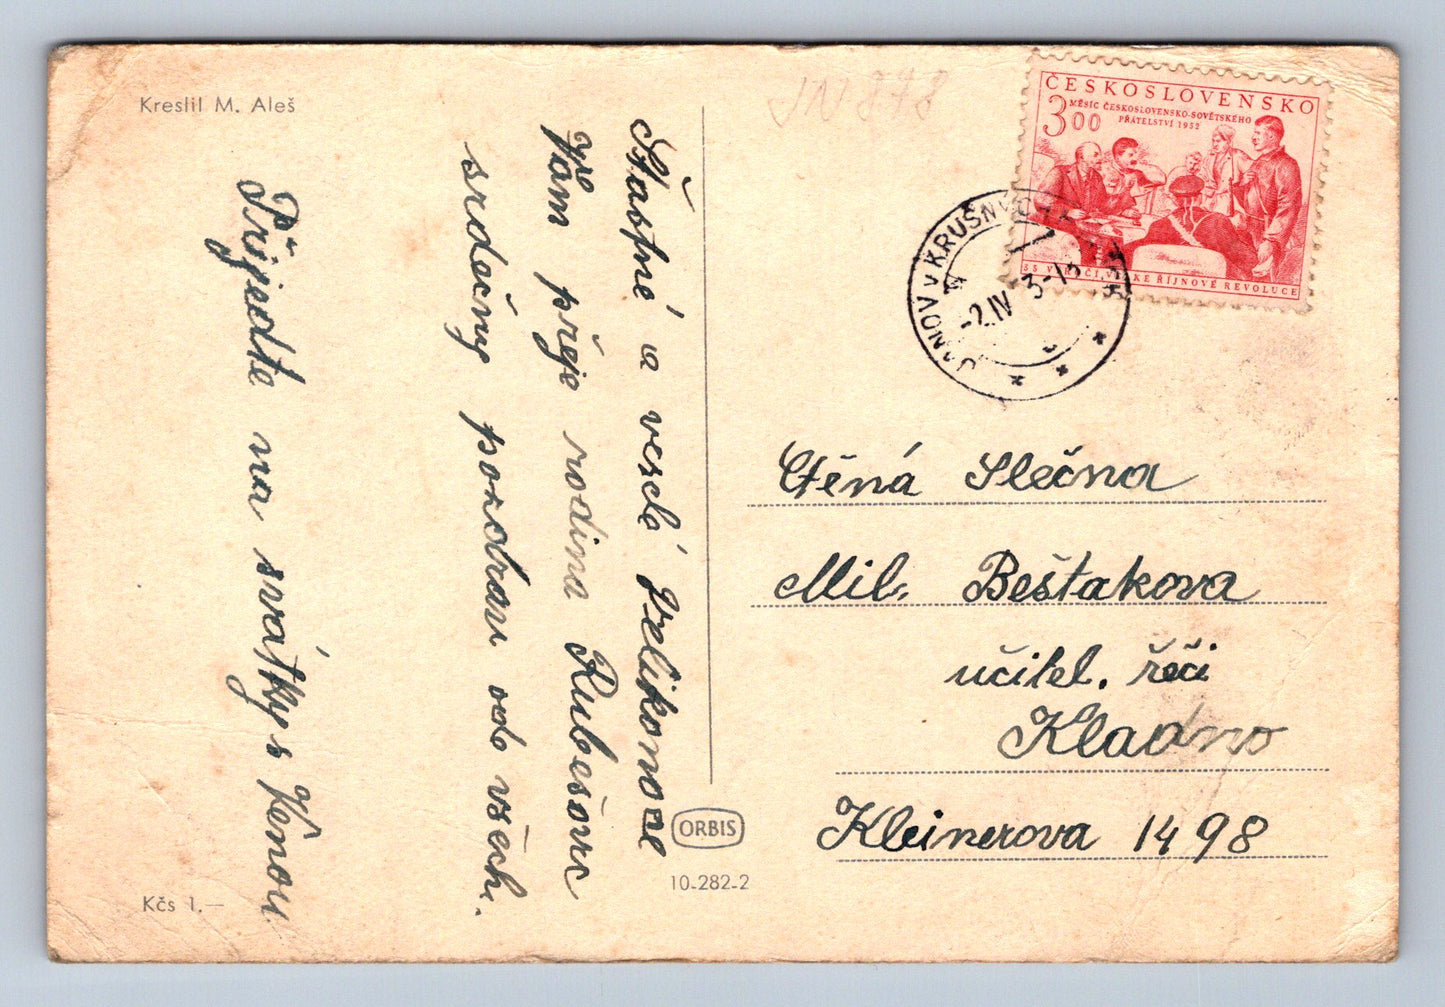 Kreslil M. Aleš
JN 878
ČESKOSLOVENSKO
3 00
MĚSÍC ČESKOSLOVENSKO-SOVĚTSKÉHO
PŘÁTELSTVÍ 1952
35 VÝROČÍ VELKÉ ŘÍJNOVÉ REVOLUCE
JANOV v KRUŠNÝCH
-2.IV 3-13
Šťastné a veselé Velikonoce
Vám přeje rodina Rubešovic
srdečný pozdrav od všech.
Přijeďte na svátky s Věnou
Ctěná Slečna
Mil. Beštakova
učitel. řeči
Kladno
Kleinerova 1498
ORBIS
10-282-2
Kčs 1.—